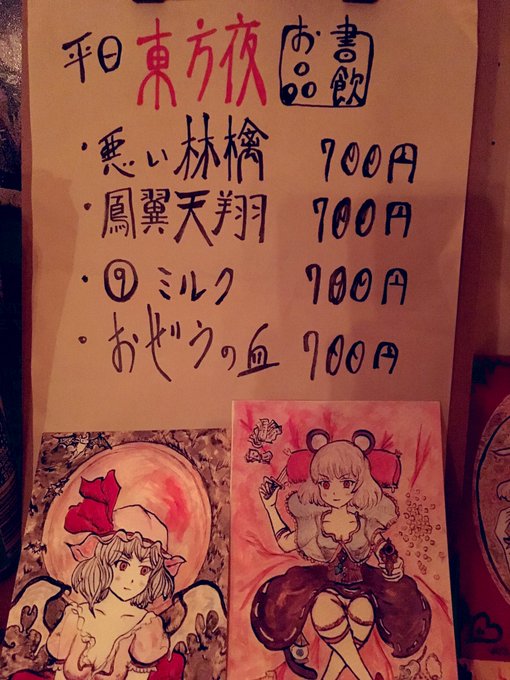 平日 東方夜 お品書飲
・悪い林檎 700円
・鳳翼天翔 700円
・⑨ミルク 700円
・おぜうの血 700円